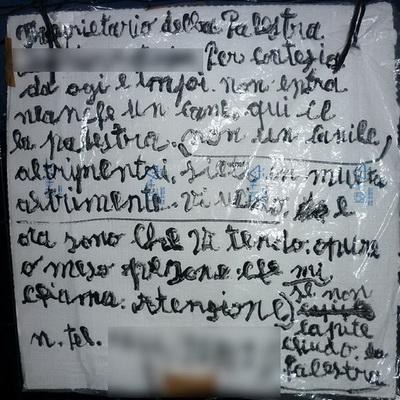 proprietario della Palestra
Per cortesia
da ogi e impoi. non entra
neanche un cane. qui ce
la palestra. non un canile,
altrimentri, siete in multa
astrumente. vi
ora sono che vi tendo. opure
o meso persone che mi
chiama. Atenzione) se non
capite
n. tel. chiudo. la
Palestra